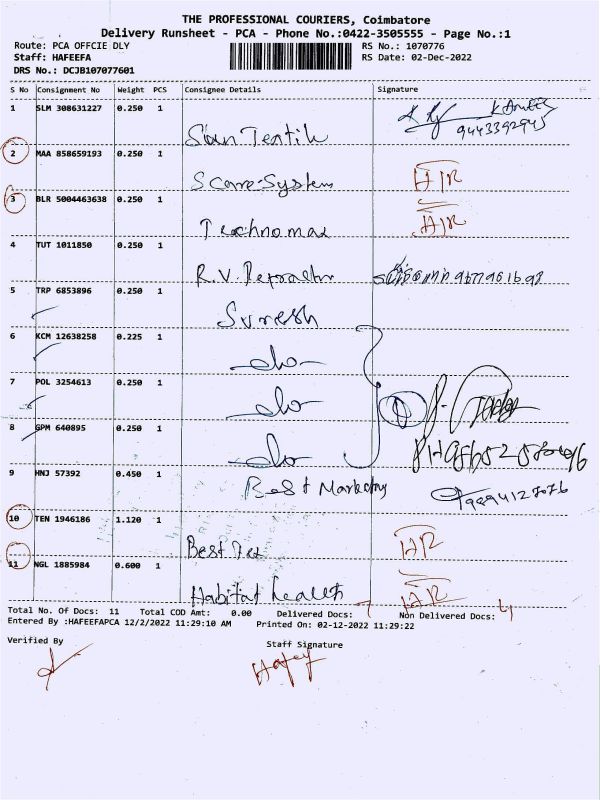 THE PROFESSIONAL COURIERS, Coimbatore
Delivery Runsheet - PCA - Phone No.:0422-3505555 - Page No.:1
Route: PCA OFFCIE DLY RS No.: 1070776
Staff: HAFEEFA RS Date: 02-Dec-2022
DRS No.: DCJB107077601
S No Consignment No Weight PCS Consignee Details Signature
1 SLM 308631227 0.250 1
9443392945
2 MAA 858659193 0.250 1
System
3 BLR 5004463638 0.250 1
Technomax
4 TUT 1011850 0.250 1
R.V.
5 TRP 6853896 0.250 1
Suresh
6 KCM 12638258 0.225 1
7 POL 3254613 0.250 1
8 GPM 640895 0.250 1
9 HNJ 57392 0.450 1
Best
10 TEN 1946186 1.120 1
Best Tex
11 NGL 1885984 0.600 1
Habitat health
Total No. Of Docs: 11 Total COD Amt: 0.00 Delivered Docs: 7 Non Delivered Docs: 4
Entered By :HAFEEFAPCA 12/2/2022 11:29:10 AM Printed On: 02-12-2022 11:29:22
Verified By Staff Signature
Hafeef